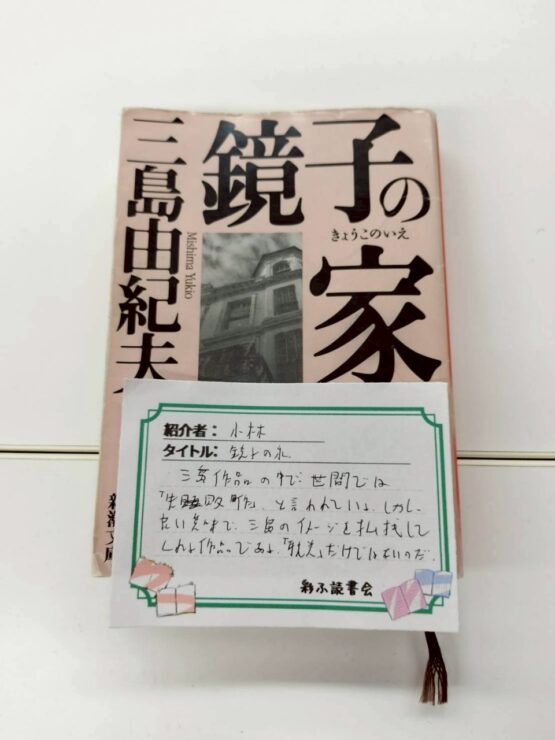 鏡子の家
きょうこのいえ
三島由紀夫
Mishima Yukio
新潮文庫
紹介者： 小林
タイトル： 鏡子の家
三島作品の中で世間では
「失敗作」と言われている。しかし
良い意味で、三島のイメージを払拭して
くれる作品である。「耽美」だけではないのだ。
彩ふ読書会